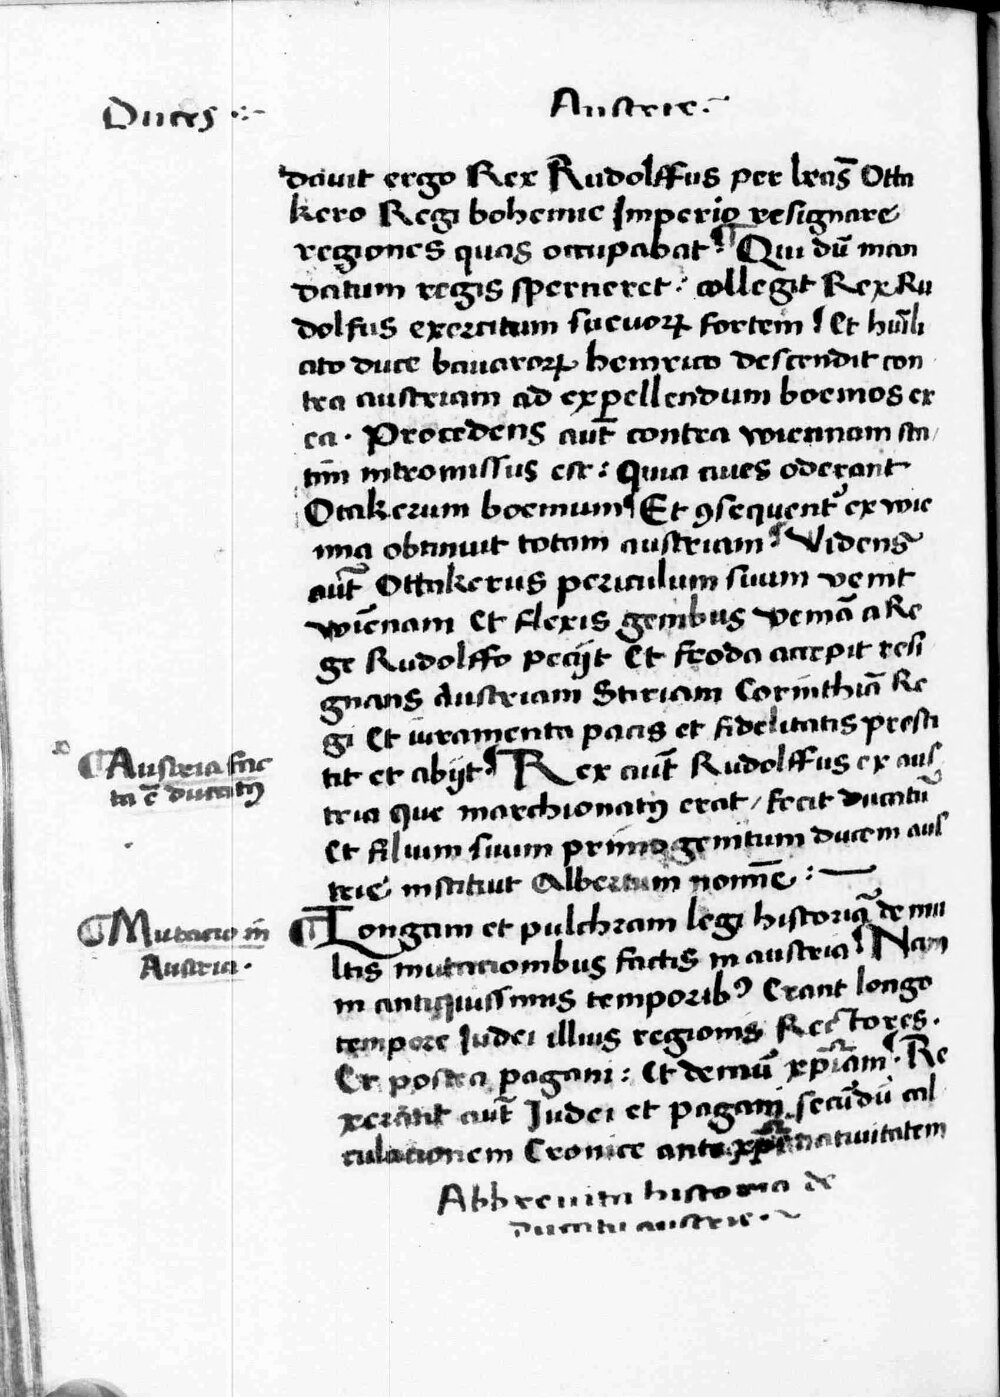 Duces
Austrie
dauit ergo Rex Rudolffus per lr̄as Otta
kero Regi bohemie Imperio resignare
regiones quas occupabat Qui dū man
datum regis sperneret: collegit Rex Ru
dolfus exercitum sueuoꝝ fortem Et hūili
ato duce bauaroꝝ heinrico descendit con
tra austriam ad expellendum boemos ex
ea. Procedens aut̄ contra wiennam sta
tim intromissus est: Quia ciues oderant
Otakerum boemum Et ꝯsequent᷑ ex wie
nna obtinuit totam austriam Videns
aut̄ Ottakerus periculum suum venit
wiēnam Et flexis genibus veniā a Re
ge Rudolffo peciit Et feoda accepit resi
gnans Austriam Stiriam Corinthiā Re
gi Et iuramenta pacis et fidelitatis presti
tit et abijt Rex aut̄ Rudolffus ex aus
Austria fac
ta ē ducatꝯ
tria que marchionatꝯ erat / fecit ducatū
Et filium suum primogenitum ducem aus
trie instituit Albertum nomīe:
Mutacio in
Austria.
Longam et pulchram legi historiā de mu
ltis mutacionibus factis in austria Nam
in antiquissimis temporibꝯ Erant longo
tempore Judei illius regionis Rectores.
Et postea pagani: Et demū xp̄iani. Re
xerant aut̄ Judei et pagani secūdū cal
culacionem Cronice ante xp̄i natiuitatem
Abbreuita historia de
ducatu austrie.